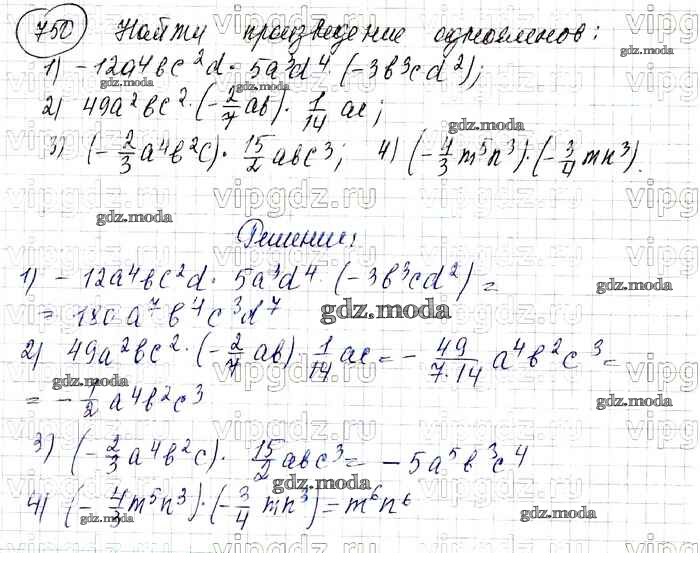 750 Найти произведение одночленов:
1) -12a⁴bc²d · 5a³d⁴ · (-3b³cd²);
2) 49a²bc² · (-2/7 ab) · 1/14 ac;
3) (-2/3 a⁴b²c) · 15/2 abc³; 4) (-4/3 m⁵n³) · (-3/4 mn³).
Решение:
1) -12a⁴bc²d · 5a³d⁴ · (-3b³cd²) =
= 180a⁷b⁴c³d⁷
2) 49a²bc² · (-2/7 ab) 1/14 ac = - 49/7·14 a⁴b²c³ =
= -1/2 a⁴b²c³
3) (-2/3 a⁴b²c) · 15/2 abc³ = -5a⁵b³c⁴
4) (-4/3 m⁵n³) · (-3/4 mn³) = m⁶n⁶